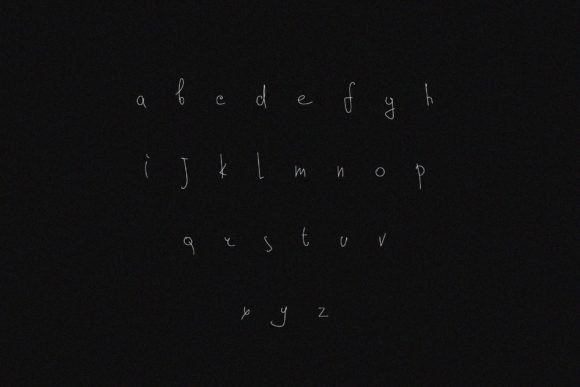 a b c d e f g h
i j k l m n o p
q r s t u v
x y z